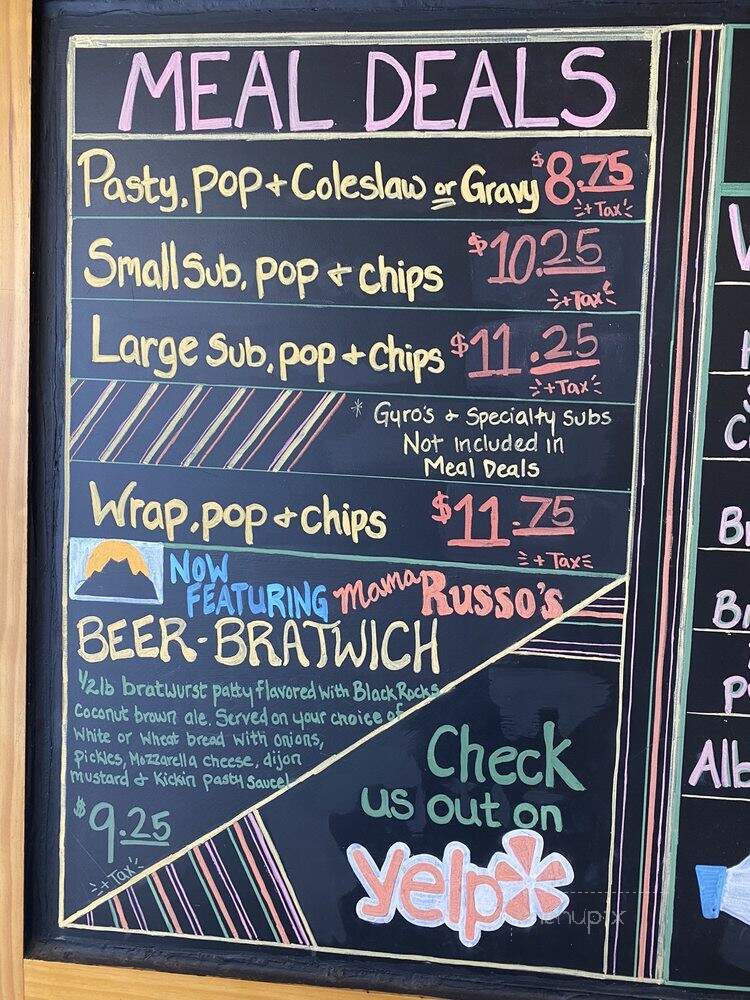 MEAL DEALS
Pasty, pop + Coleslaw or Gravy $8.75
+ Tax
Small Sub, pop + chips $10.25
+ Tax
Large Sub, pop + chips $11.25
+ Tax
* Gyro's + Specialty Subs
Not Included in
Meal Deals
Wrap, pop + chips $11.75
+ Tax
NOW
FEATURING Mama Russo's
BEER-BRATWICH
1/2 lb bratwurst patty flavored with Black Rocks
Coconut brown ale. Served on your choice of
White or Wheat bread with onions,
pickles, Mozzarella cheese, dijon
mustard & Kickin pasty sauce!
$9.25
+ Tax
Check
us out on
yelp
menupix